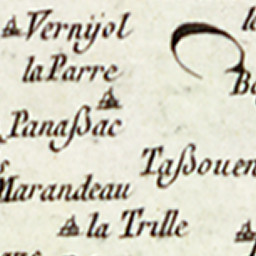 Vernijol
la Parre
Panaßac
Taßouen
Marandeau
la Trille